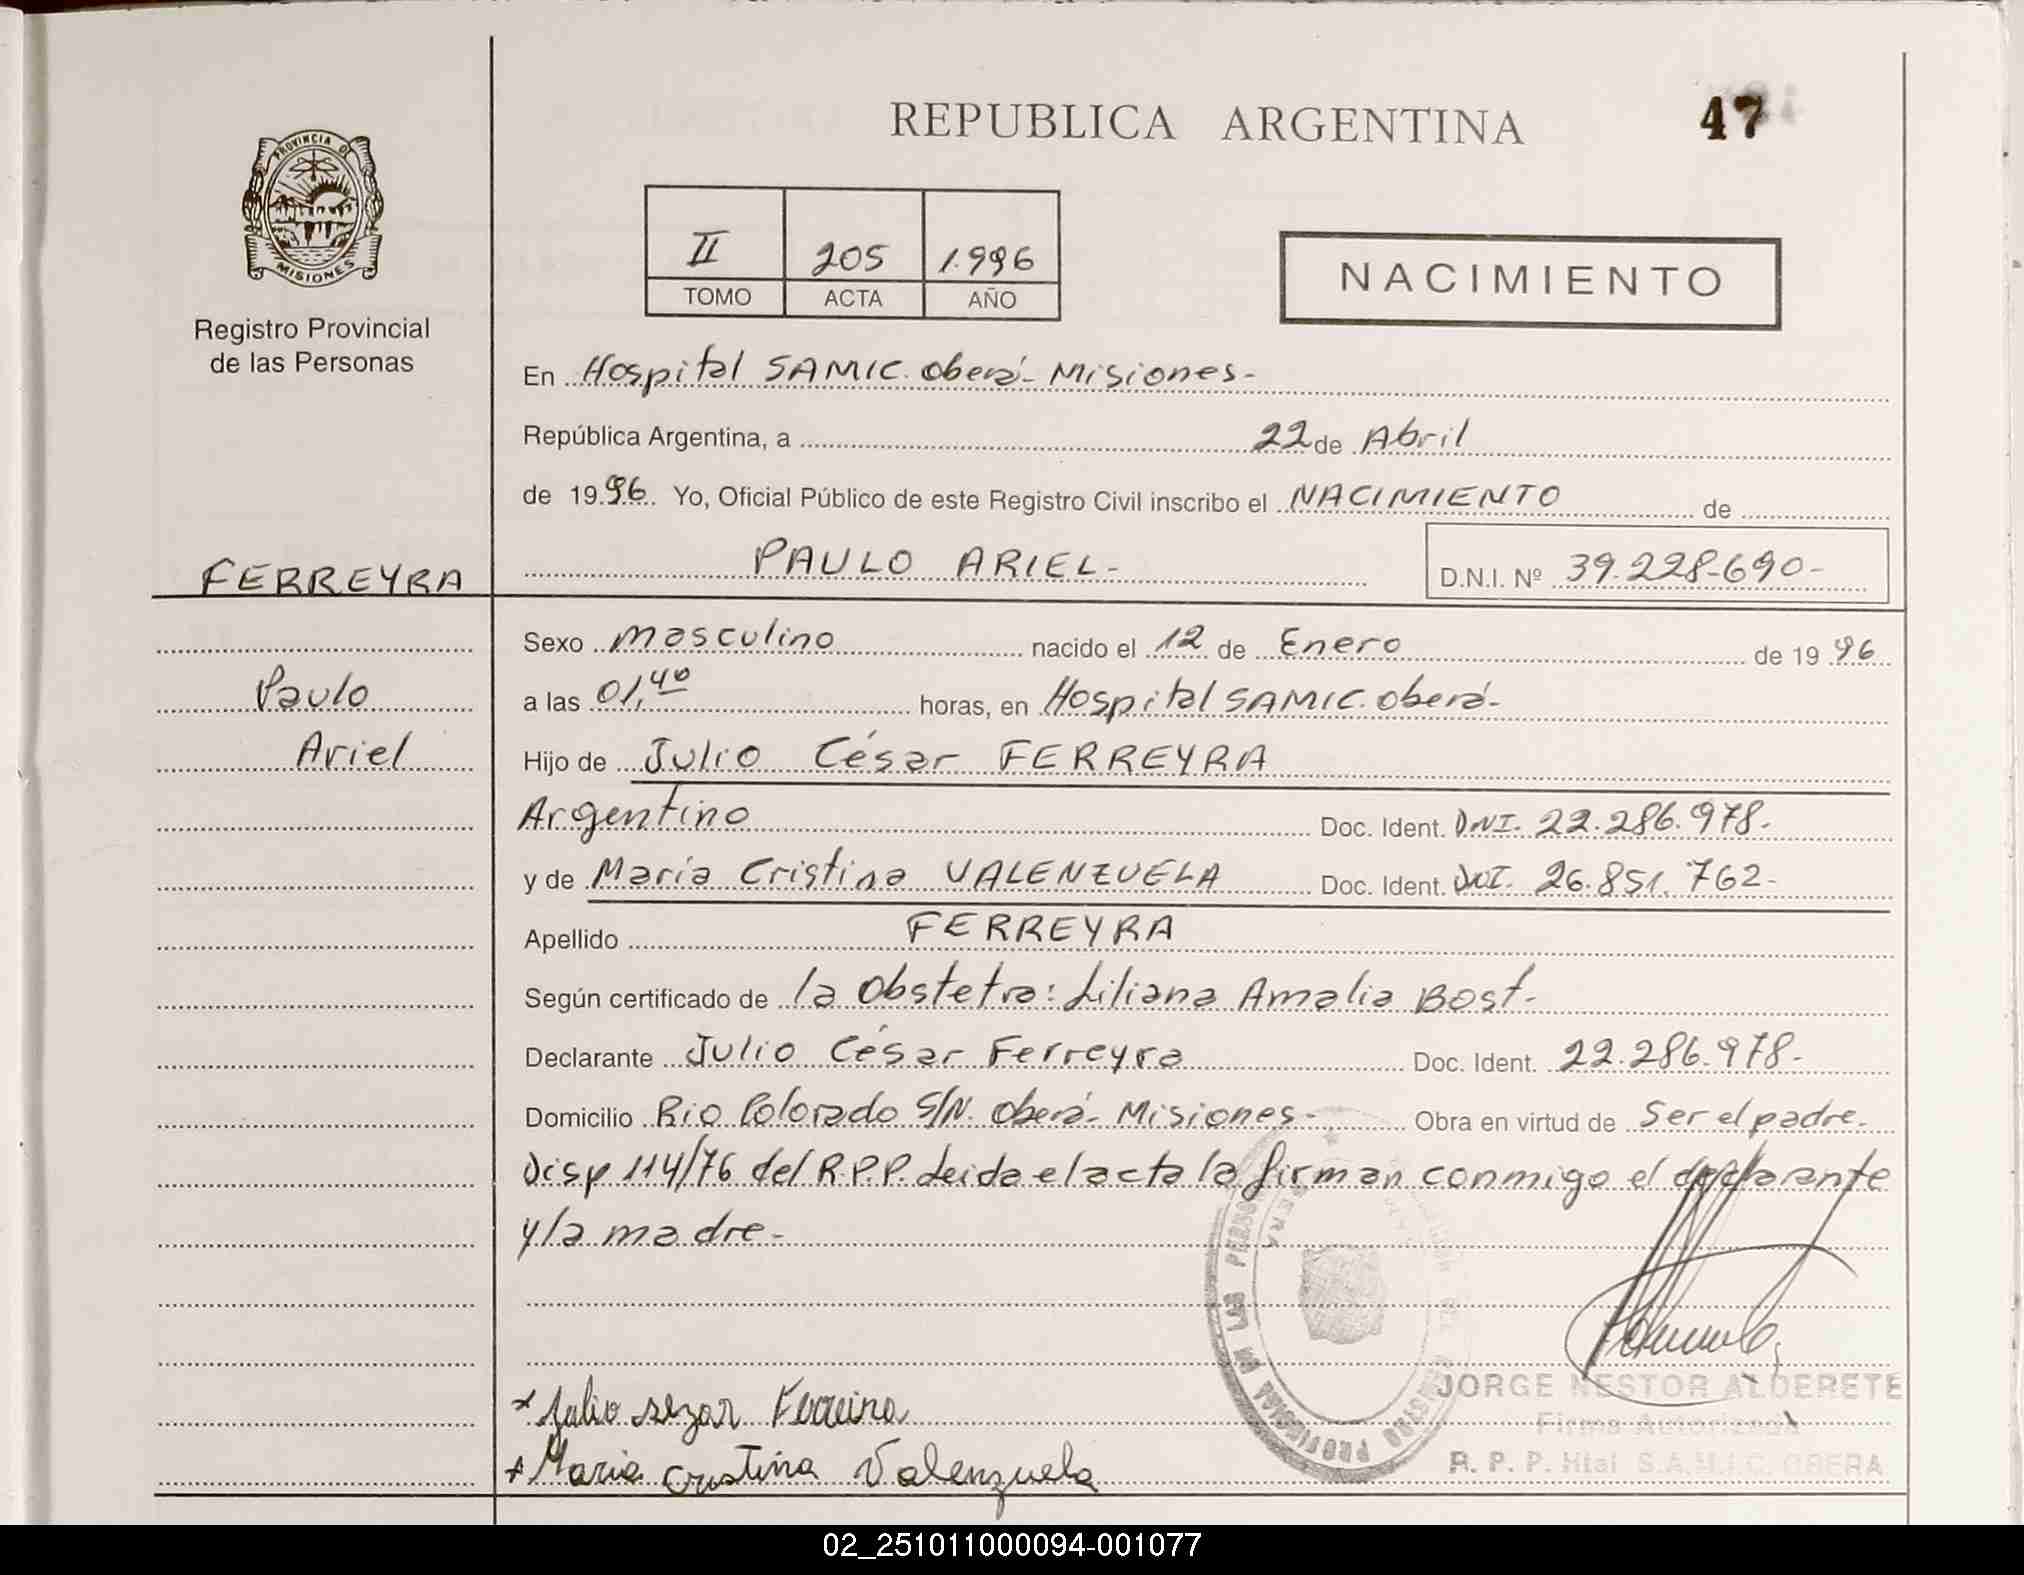 REPUBLICA ARGENTINA
47
PROVINCIA DE
MISIONES
Registro Provincial
de las Personas
II 205 1.996
TOMO ACTA AÑO
NACIMIENTO
En Hospital SAMIC. Oberá- Misiones-
República Argentina, a 22 de Abril
de 1996. Yo, Oficial Público de este Registro Civil inscribo el NACIMIENTO de
FERREYRA PAULO ARIEL- D.N.I. Nº 39.228.690-
Sexo masculino nacido el 12 de Enero de 1996
Paulo a las 01,40 horas, en Hospital SAMIC. Oberá-
Ariel Hijo de Julio César FERREYRA
Argentino Doc. Ident. DNI. 22.286.978.
y de María Cristina VALENZUELA Doc. Ident. DNI. 26.851.762-
Apellido FERREYRA
Según certificado de la Obstetra: Liliana Amalia Bost-
Declarante Julio César Ferreyra Doc. Ident. 22.286.978-
Domicilio Rio Colorado S/N. Oberá- Misiones- Obra en virtud de Ser el padre.
Disp 114/76 del R.P.P. Leida el acta la firman conmigo el declarante
y la madre-
REGISTRO PROVINCIAL DE LAS PERSONAS
JORGE NESTOR ALDERETE
Firma Autorizada
R. P. P. Htal S.A.M.I.C. OBERA
Julio sezar Ferreira
Maria Cristina Valenzuela
02_251011000094-001077